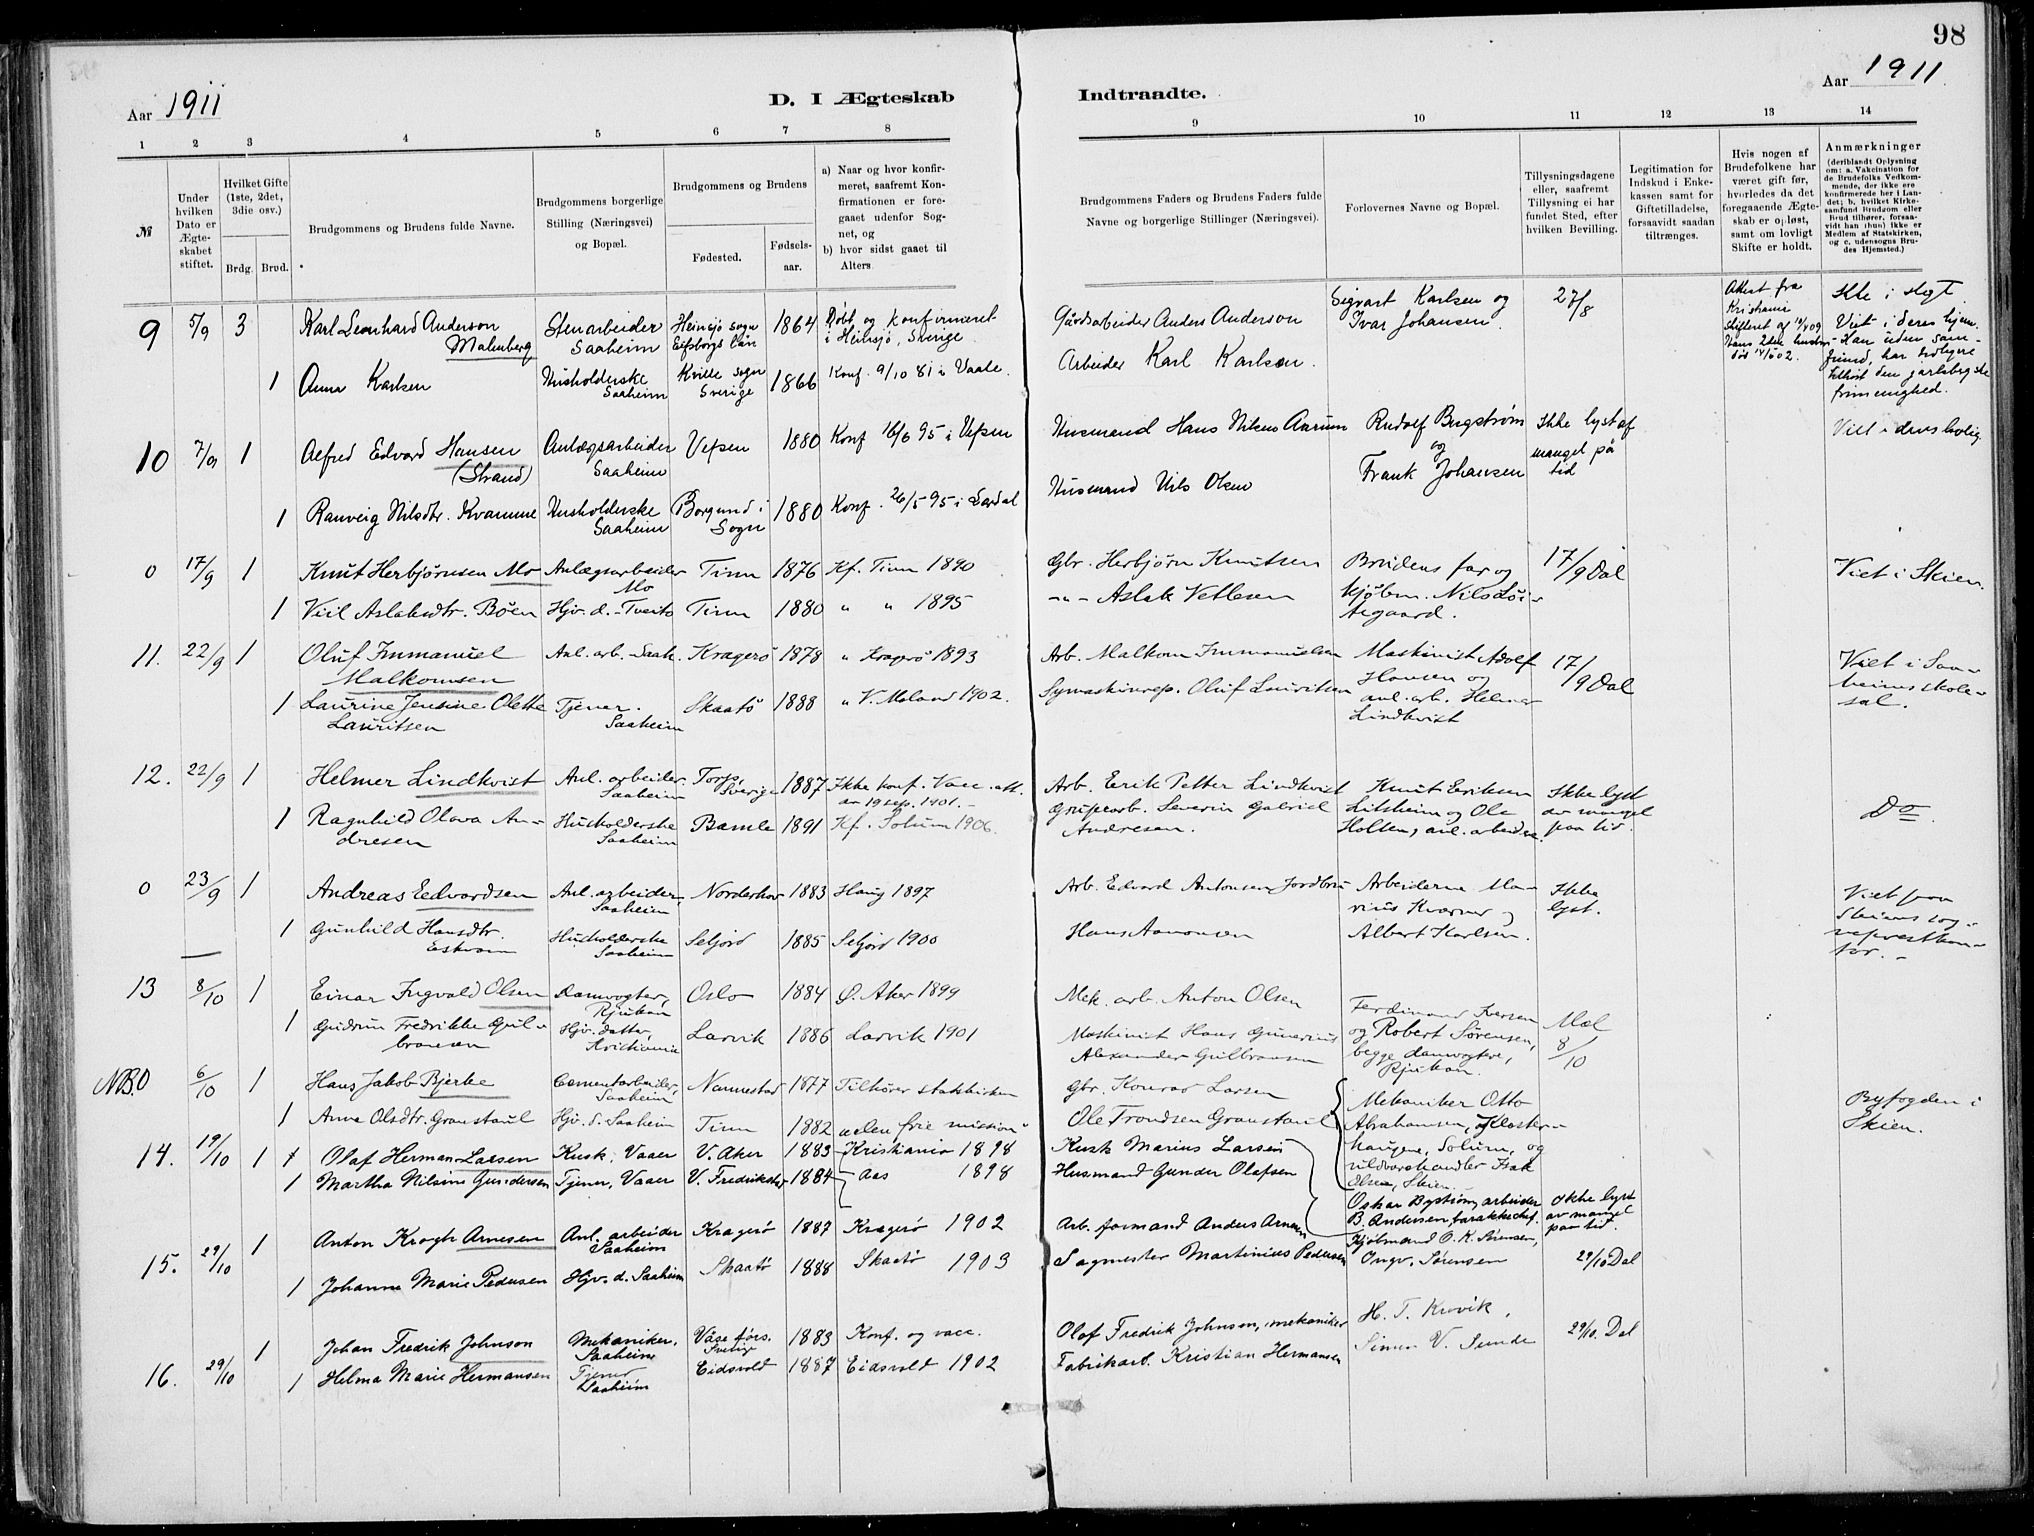 98
Aar 1911
D. I Ægteskab
Indtraadte.
Aar 1911.
1 2 3 4 5 6 7 8 9 10 11 12 13 14
№
Under hvilken Dato er Ægteskabet stiftet.
Hvilket Gifte (1ste, 2det, 3die osv.)
Brdg. Brud.
Brudgommens og Brudens fulde Navne.
Brudgommens borgerlige Stilling (Næringsvei) og Bopæl.
Brudgommens og Brudens
Fødested.
Fødsels-aar.
a) Naar og hvor konfirmeret, saafremt Konfirmationen er foregaaet udenfor Sognet, og
b) hvor sidst gaaet til Alters
Brudgommens Faders og Brudens Faders fulde Navne og borgerlige Stillinger (Næringsvei).
Forlovernes Navne og Bopæl.
Tillysningsdagene eller, saafremt Tillysning ei har fundet Sted, efter hvilken Bevilling.
Legitimation for Indskud i Enkekassen samt for Giftetilladelse, forsaavidt saadan tiltrænges.
Hvis nogen af Brudefolkene har været gift før, hvorledes da det foregaaende Ægteskab er opløst, samt om lovligt Skifte er holdt.
Anmærkninger (deriblandt Oplysning om: a. Vakcination for de Brudefolks Vedkommende, der ikke ere konfirmerede her i Landet; b. hvilket Kirkesamfund Brudgom eller Brud tilhører, forsaavidt han (hun) ikke er Medlem af Statskirken, og c. udensogns Brudes Hjemsted.)
9 5/9 3 Karl Leonhard Anderson Malmberg Stenarbeider Saaheim Heinsjö sogn Elfsborgs län 1864 Döbt og konfirmeret i Heinsjö, Sverige Gårdsarbeider Anders Anderson Sigvart Karlsen og Ivar Johansen. 27/8 Attest fra Kristiania skifteret af Hans 2den hustru død Ikke i slegt. Viet i deres hjem. Han uden samfund, har tidligere tilhørt den jarlsbergske frimenighed.
1 Anna Karlsen Husholderske Saaheim Kville sogn Sverige 1866 Konf. 9/10 81 i Vaale. Arbeider Karl Karlsen.
10 7/9 1 Alfred Edvard Hansen (Strand) Anlægsarbeider Saaheim Vefsen 1880 Konf 16/6 95 i Vefsen Husmand Hans Nilsen Rudolf Bergström og Frank Johansen Ikke lyst af mangel på tid Viet i deres bolig
1 Ranveig Nilsdtr. Kvamme Husholderske Saaheim Borgund i Sogn 1880 Konf. 26/5 95 i Lærdal Husmand Nils Olsen
0 17/9 1 Knut Herbjørnsen Mo Anlægsarbeider Mo Tinn 1876 Kf. Tinn 1890 Gbr. Herbjørn Knutsen Brudens far og kjøbm. Nils Aegaard. 17/9 Dal Viet i Skien.
1 Viil Aslaksdtr. Bøen Hjv. d. Tveito Tinn 1880 " " 1895 -"- Aslak Vetlesen
11. 22/9 1 Oluf Immanuel Malkomsen Anl. arb. - Saah. Kragerö 1878 " Kragerö 1893 Arb. Malkom Immanuelsen Maskinist Adolf Hansen og anl. arb. Helmer Lindkvist 17/9 Dal Viet i Saaheims skolesal.
1 Laurine Jensine Olette Lauritsen Tjener. Saaheim Skaatö 1888 " V. Moland 1902. Symaskinrep. Oluf Lauritsen
12. 22/9 1 Helmer Lindkvist Anl. arbeider. Saaheim Torp, Sverige 1887 Ikke konf. Vacc. att. av 19 sep. 1901. - Arb. Erik Petter Lindkvist Knut Eriksen Litsheim og Ole Holten, anl. arbeidere. Ikke lyst av mangel paa tid. Do.
1 Ragnhild Olava Andresen Husholderske Saaheim Bamle 1891 Kf. Solum 1906. Grubearb. Severin Gabriel Andresen.
0 23/9 1 Andreas Eedvardsen Anl. arbeider, Saaheim Norderhov 1883 Haug 1897 Arb. Edvard Antonsen Jordbru Arbeiderne Marius Kværner og Albert Karlsen. Ikke lyst. Viet paa Skiens sogneprestkontor. -
1 Gunhild Hansdtr. Husholderske Saaheim Seljord 1885 Seljord 1900 Hans Aamonsen
13 8/10 1 Einar Ingvald Olsen Damvogter, Rjukan Oslo 1884 Ø. Aker 1899 Mek. arb. Anton Olsen Ferdinand Iversen og Robert Sørensen, begge damvogtere, Rjukan. Mæl 8/10
1 Gudrun Fredrikke Gulbransen Hjv. datter, Kristiania Larvik 1886 Larvik 1901 Maskinist Hans Gunerius Alexander Gulbransen
NB. 0 6/10 1 Hans Jakob Bjerke Cementarbeider, Saaheim Nannestad 1877 Tilhører statskirken Gbr. Konrad Larsen Mekaniker Otto Abrahamsen, Klosterhaugen, Solum, og uldvarehandler Isak Olsen, Skien. Byfogden i Skien.
1 Anne Olsdtr. Graastaul Hjv. d. Saaheim Tinn 1882 "den frie mission" Ole Trondsen Graastaul
14. 19/10 1 Olaf Herman Larsen Kusk, Vaaer V. Aker 1883 Kristiania 1898 Kusk Marius Larsen Oskar Byström, arbeider B. Andersen, barakkechef. Ikke lyst av mangel paa tid.
1 Martha Nilsine Gundersen Tjener, Vaaer V. Fredrikstad 1884 Aas 1898 Husmand Gunder Olafsen
15. 29/10 1 Anton Krogh Arnesen Anl. arbeider Saaheim Kragerø 1887 Kragerø 1902 Arb. formand Anders Arnesen Kjøbmand O. K. Ingv. Sørensen 29/10 Dal
1 Johanne Marie Pedersen Hjv. d. Saaheim Skaatö 1888 Skaatö 1903 Sagmester Martinius Pedersen
16. 29/10 1 Johan Fredrik Johnson Mekaniker, Saaheim Väse förs. Sverige 1883 Konf. og vacc. Olof Fredrik Johnson, mekaniker H. T. Krovik, Simen V. Sunde 29/10. Dal
1 Helma Marie Hermansen Tjener Saaheim Eidsvold 1887 Eidsvold 1902 Fabrikarb. Kristian Hermansen